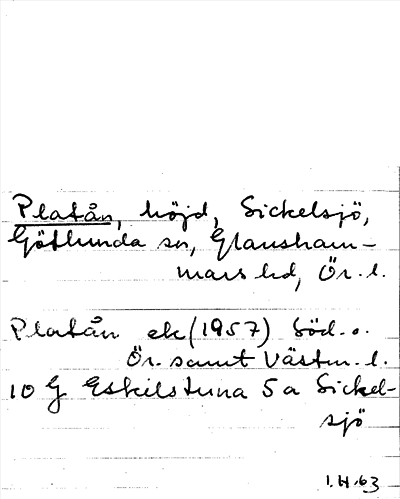 Platån, höjd, Sickelsjö,
Götlunda sn, Glansham-
mars hd, Ör. l.
Platån ek (1957) Söd. o.
Ör. samt Västm. l.
10 G Eskilstuna 5 a Sickel-
sjö